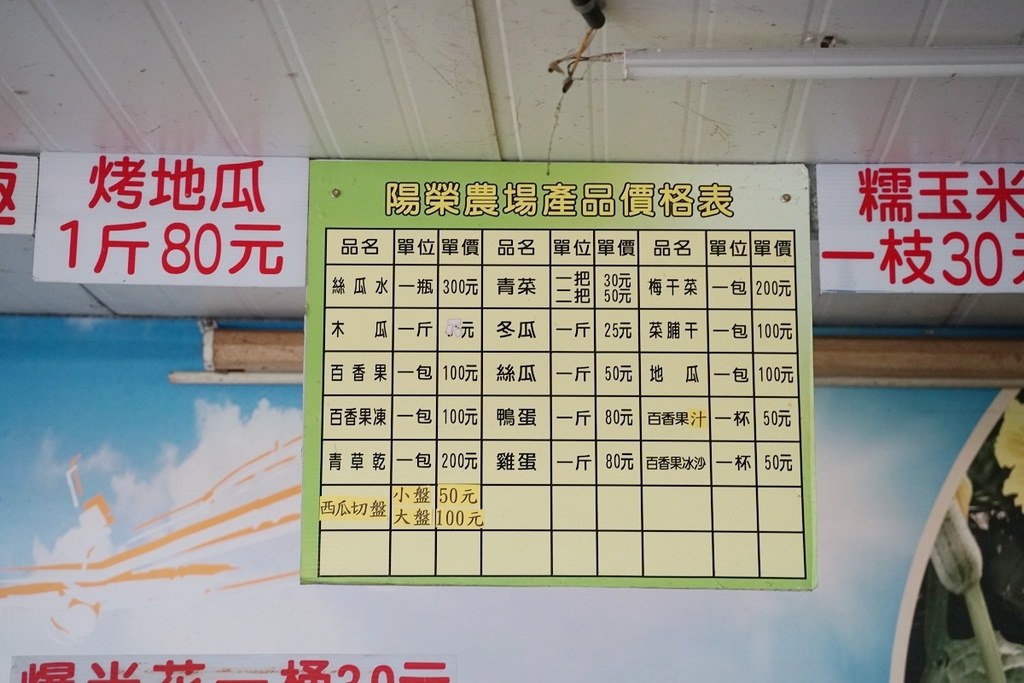 烤地瓜
1斤80元
陽榮農場產品價格表
品名 單位 單價 品名 單位 單價 品名 單位 單價
絲瓜水 一瓶 300元 青菜 一把 30元 二把 50元 梅干菜 一包 200元
木瓜 一斤 元 冬瓜 一斤 25元 菜脯干 一包 100元
百香果 一包 100元 絲瓜 一斤 50元 地瓜 一包 100元
百香果凍 一包 100元 鴨蛋 一斤 80元 百香果汁 一杯 50元
青草乾 一包 200元 雞蛋 一斤 80元 百香果冰沙 一杯 50元
西瓜切盤 小盤 50元
大盤 100元
糯玉米
一枝30元
爆米花一桶30元